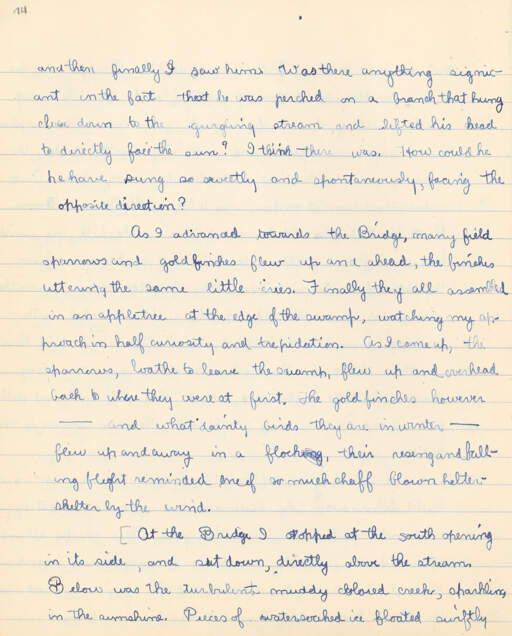 14
and then finally I saw him. Was there anything signific-
ant in the fact that he was perched on a branch that hung
close down to the gurgling stream and lifted his head
to directly face the sun? I think there was. How could he
he have sung so sweetly and spontaneously, facing the
opposite direction?
As I advanced towards the Bridge, many field
sparrows and goldfinches flew up and ahead, the finches
uttering the same little cries. Finally they all assembled
in an appletree at the edge of the swamp, watching my ap-
proach in half curiosity and trepidation. As I came up, the
sparrows, loathe to leave the swamp, flew up and overhead
back to where they were at first. The goldfinches however
— and what dainty birds they are in winter —
flew up and away in a flock, their rising and fall-
ing flight reminded one of so much chaff blown helter-
skelter by the wind.
[ At the Bridge I stopped at the south opening
in its side, and sat down, directly above the stream.
Below was the turbulent muddy colored creek, sparkling
in the sunshine. Pieces of watersoaked ice floated swiftly